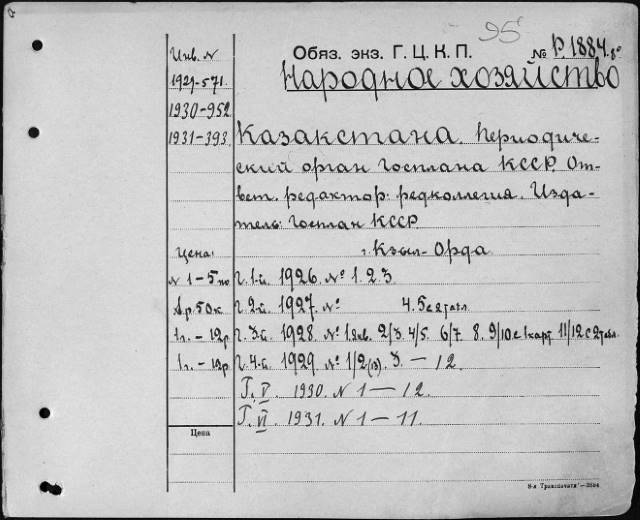 95
Обяз. экз. Г. Ц. К. П. № Р. 1884. 8°
Инв. N
Народное хозяйство
1929-571.
1930-952
1931-393. Казакстана. Периодиче-
ский орган Госплана КССР. От-
вет. редактор: редколлегия. Изда-
тель: Госплан КССР
Цена: г. Кзыл-Орда.
N 1-5 по г. 1-й. 1926. № 1. 2. 3.
1 р. 50 к. г. 2-й. 1927. № 4. 5 с 2 табл.
1 г. - 12 р. г. 3-й. 1928. № 1. 2/3. 4/5. 6/7. 8. 9/10 с 1 карт. 11/12 с 2 табл.
1 г. - 12 р. г. 4-й. 1929. № 1/2 (13). 3. - 12.
Г. V. 1930. N 1 - 12.
Г. VI. 1931. N 1 - 11.
Цена
8-я Транспечати - 3594